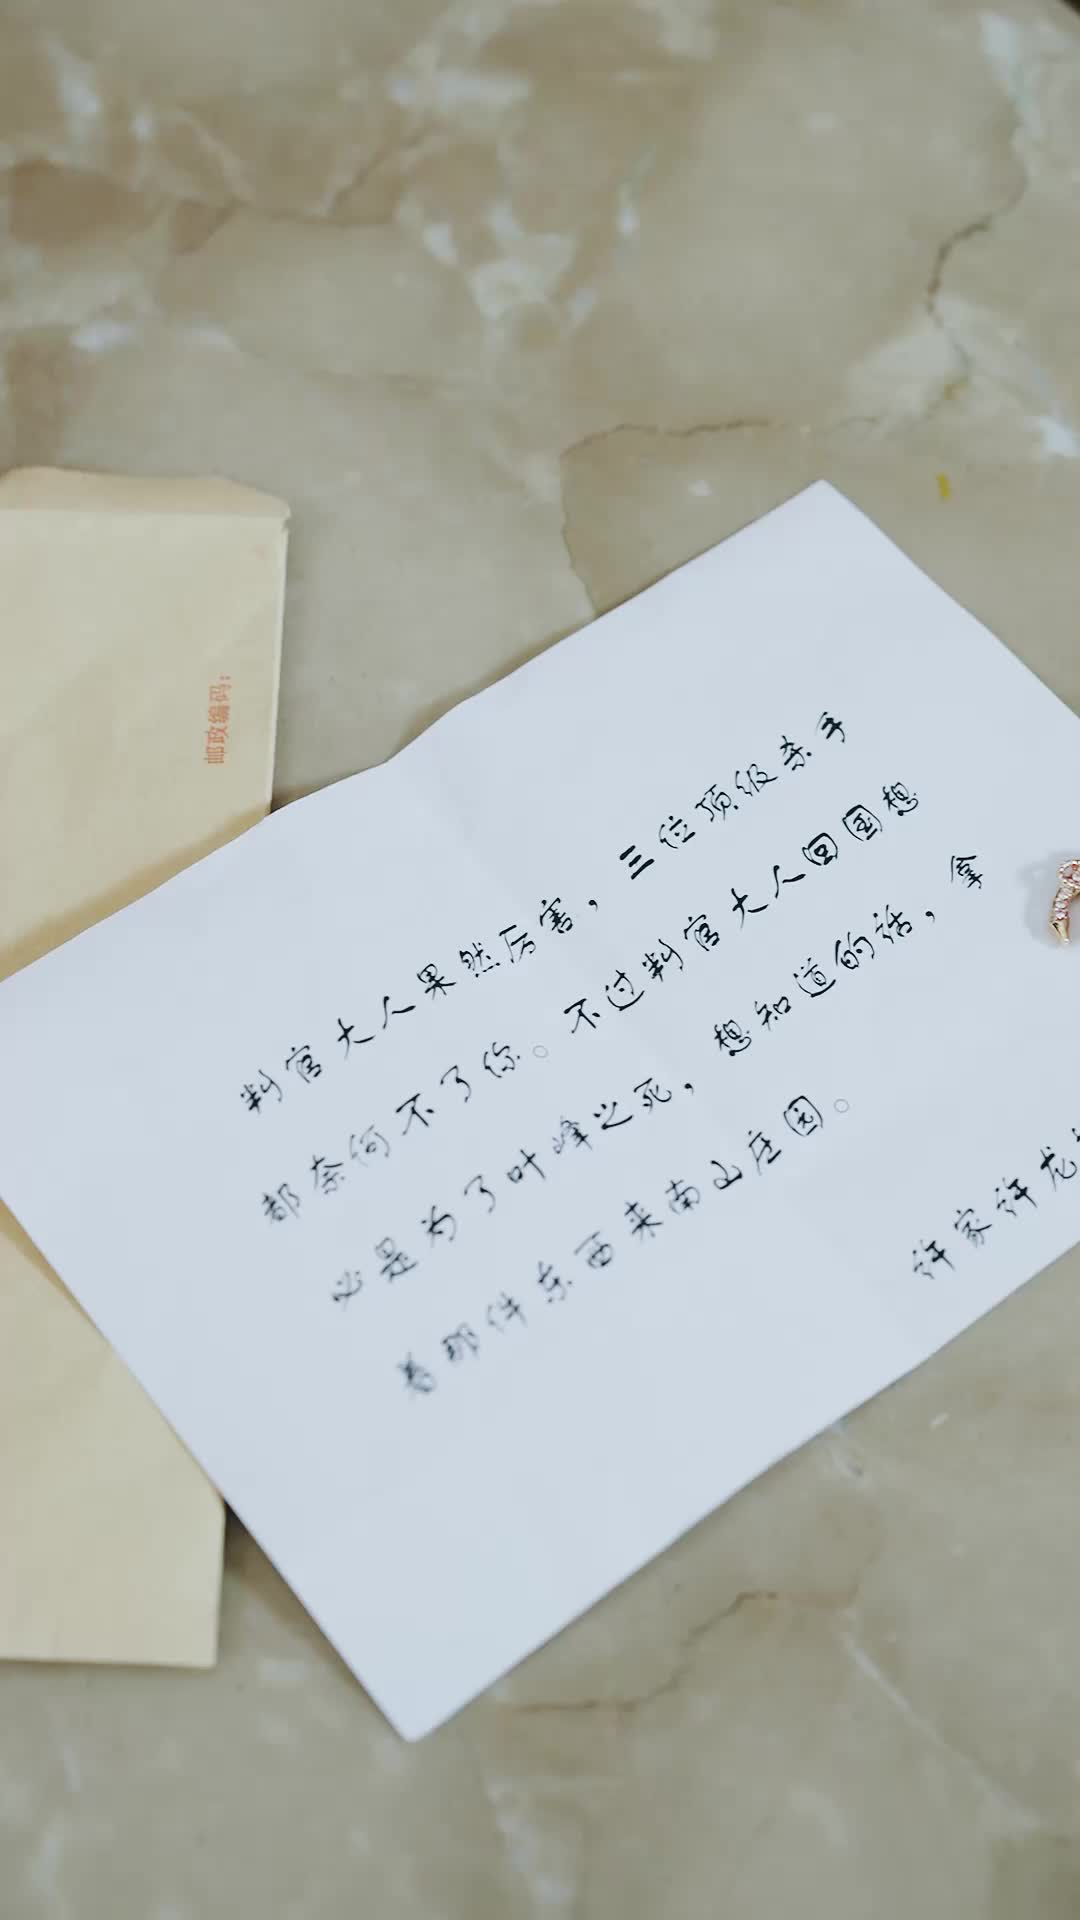 邮政编码:
判官大人果然厉害，三位顶级杀手
都奈何不了你。不过判官大人回国想
必是为了叶峰之死，想知道的话，拿
着那件东西来南山庄园。
许家许龙